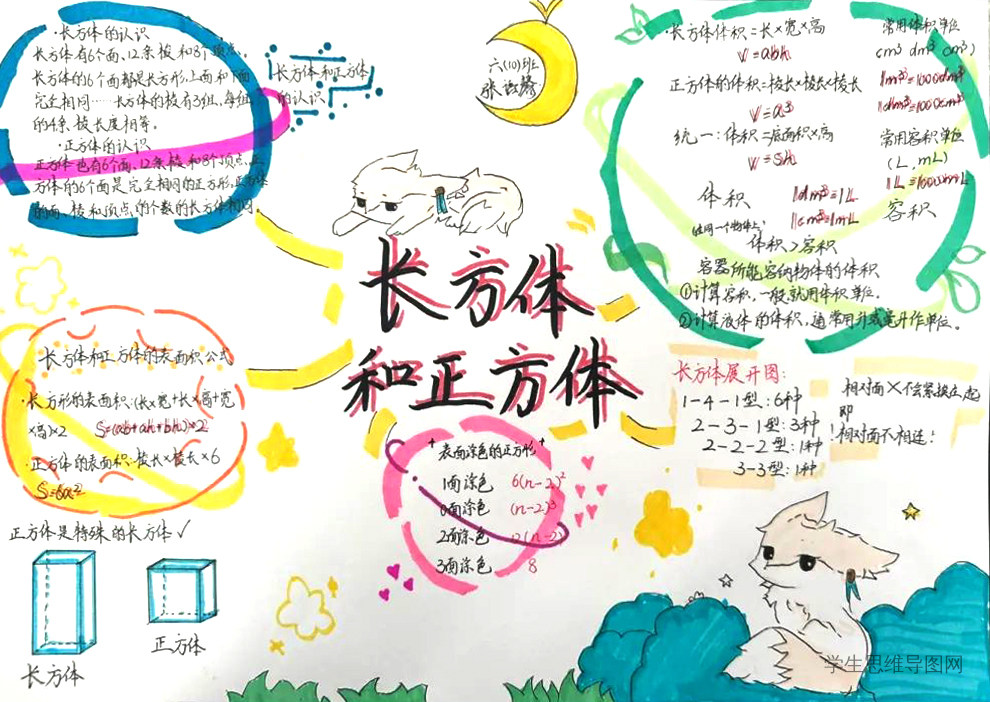 ·长方体的认识
长方体有6个面、12条棱和8个顶点。
长方体的6个面都是长方形,上面和下面
完全相同……长方体的棱有3组,每组
的4条棱长度相等。
·正方体的认识
正方体也有6个面、12条棱和8个顶点,正
方体的6个面是完全相同的正方形,正方体
的面、棱和顶点的个数的长方体相同。
长方体和正方体
的认识
六(10)班
长方体
和正方体
·长方体体积=长×宽×高
V=abh
正方体的体积=棱长×棱长×棱长
V=a³
统一:体积=底面积×高
V=Sh
常用体积单位
cm³ dm³ cm³)
1m³=1000dm³
1dm³=1000cm³
常用容积单位
(L,mL)
1L=1000mL
体积
1dm³=1L
1cm³=1mL
容积
(在同一个物体上)
体积>容积
容器所能容纳物体的体积
①计算容积,一般就用体积单位。
②计算液体的体积,通常用升或毫升作单位。
长方体和正方体的表面积公式
·长方形的表面积:(长×宽+长×高+宽
×高)×2 S=(ab+ah+bh)×2
·正方体的表面积:棱长×棱长×6
S=6a²
正方体是特殊的长方体✓
长方体
正方体
表面涂色的正方形
1面涂色 6(n-2)²
0面涂色 (n-2)³
2面涂色 12(n-2)
3面涂色 8
长方体展开图:
1-4-1型:6种
2-3-1型:3种
2-2-2型:1种
3-3型:1种
相对面×不会紧挨在一起
即
相对面不相连!
学生思维导图网